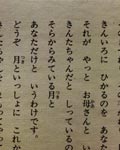 きんいろに ひかるのを あな
それが やっと お母さんと い
きんたちゃんだと しっているの
そらからみている月と
あなただけと いうわけです。
どうぞ 月といっしょに これか